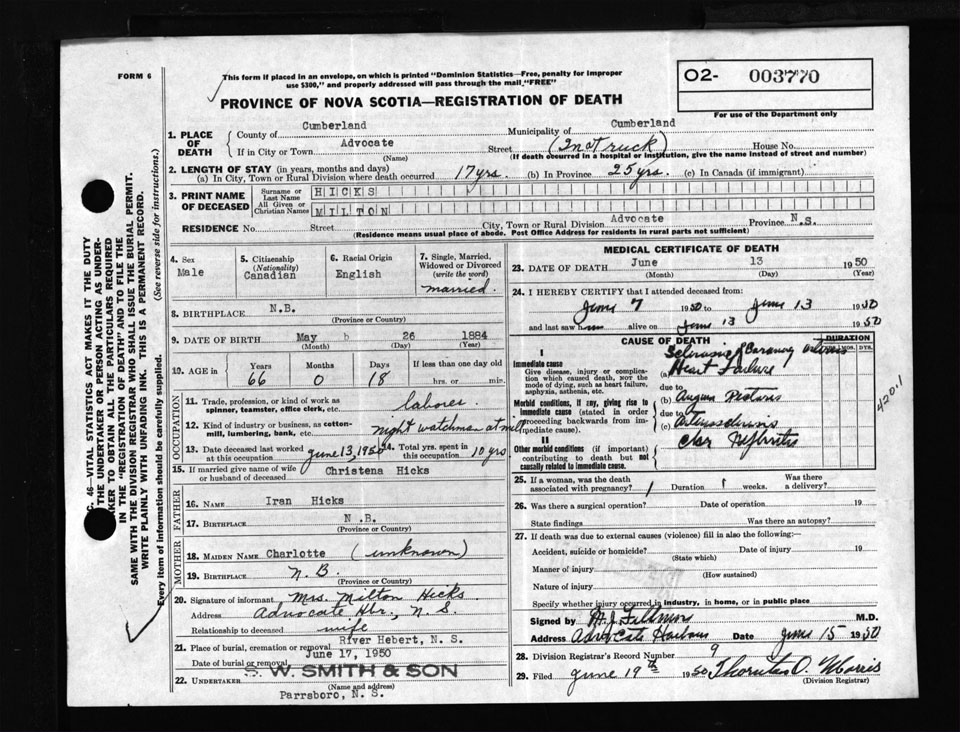 FORM 6
This form if placed in an envelope, on which is printed "Dominion Statistics—Free, penalty for improper
use $300," and properly addressed will pass through the mail "FREE"
O2- 003770
For use of the Department only
PROVINCE OF NOVA SCOTIA—REGISTRATION OF DEATH
C. 46—VITAL STATISTICS ACT MAKES IT THE DUTY
THE UNDERTAKER OR PERSON ACTING AS UNDER-
AKER TO OBTAIN ALL THE PARTICULARS REQUIRED
IN THE "REGISTRATION OF DEATH" AND TO FILE THE
SAME WITH THE DIVISION REGISTRAR WHO SHALL ISSUE THE BURIAL PERMIT.
WRITE PLAINLY WITH UNFADING INK. THIS IS A PERMANENT RECORD.
Every item of information should be carefully supplied. (See reverse side for instructions.)
1. PLACE OF DEATH
County of Cumberland Municipality of Cumberland
If in City or Town Advocate Street (In Truck) House No.
(Name) (If death occurred in a hospital or institution, give the name instead of street and number)
2. LENGTH OF STAY (in years, months and days)
(a) In City, Town or Rural Division where death occurred 17 yrs. (b) In Province 25 yrs. (c) In Canada (if immigrant)
3. PRINT NAME OF DECEASED
Surname or Last Name HICKS
All Given or Christian Names MILTON
RESIDENCE No. Street City, Town or Rural Division Advocate Province N.S.
(Residence means usual place of abode. Post Office Address for residents in rural parts not sufficient)
4. Sex Male
5. Citizenship (Nationality) Canadian
6. Racial Origin English
7. Single, Married, Widowed or Divorced (write the word) married.
8. BIRTHPLACE N.B.
(Province or Country)
9. DATE OF BIRTH May 26 1884
(Month) (Day) (Year)
10. AGE in Years 66 Months 0 Days 18 If less than one day old hrs. or min.
OCCUPATION
11. Trade, profession, or kind of work as spinner, teamster, office clerk, etc. labores
12. Kind of industry or business, as cotton-mill, lumbering, bank, etc. night watchman at mill
13. Date deceased last worked at this occupation June 13, 1950 14. Total yrs. spent in this occupation 10 yrs
15. If married give name of wife or husband of deceased Christena Hicks
FATHER
16. Name Iran Hicks
17. Birthplace N.B.
(Province or Country)
MOTHER
18. Maiden Name Charlotte (unknown)
19. Birthplace N.B.
(Province or Country)
20. Signature of informant Mrs. Milton Hicks
Address Advocate Hbr., N.S.
Relationship to deceased wife
21. Place of burial, cremation or removal River Hebert, N. S.
Date of burial or removal June 17, 1950
22. UNDERTAKER S. W. SMITH & SON
(Name and address)
Parrsboro, N. S.
MEDICAL CERTIFICATE OF DEATH
23. DATE OF DEATH June 13 1950
(Month) (Day) (Year)
24. I HEREBY CERTIFY that I attended deceased from:
June 7 1950 to June 13 1950
and last saw him alive on June 13 1950
CAUSE OF DEATH DURATION
YRS. MOS. DYS.
I
Immediate cause
Give disease, injury or complication which caused death, not the mode of dying, such as heart failure, asphyxia, asthenia, etc.
(a) Heart Failure
due to
Morbid conditions, if any, giving rise to immediate cause (stated in order proceeding backwards from immediate cause).
(b)
due to
(c)
II
Other morbid conditions (if important) contributing to death but not causally related to immediate cause.
4201
25. If a woman, was the death associated with pregnancy? Duration weeks. Was there a delivery?
26. Was there a surgical operation? Date of operation 19
State findings Was there an autopsy?
27. If death was due to external causes (violence) fill in also the following:—
Accident, suicide or homicide? Date of injury 19
(State which)
Manner of injury
(How sustained)
Nature of injury
Specify whether injury occurred in industry, in home, or in public place
Signed by M.D.
Address Advocate Harbour Date June 15 1950
28. Division Registrar's Record Number 9
29. Filed June 19th 1950 Morris
(Division Registrar)